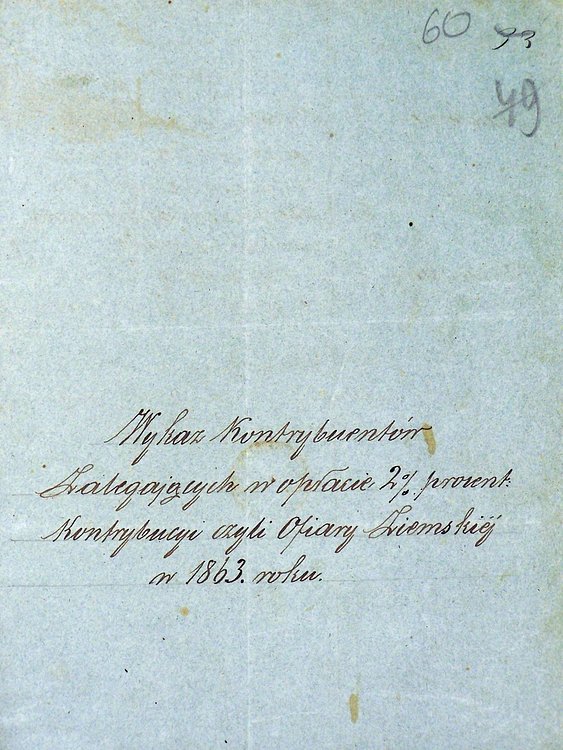 60 93
49
Wykaz Kontrybuentów
Zalegających w opłacie 2% procent:
Kontrybucyi czyli Ofiary Ziemskiéj
w 1863. roku.